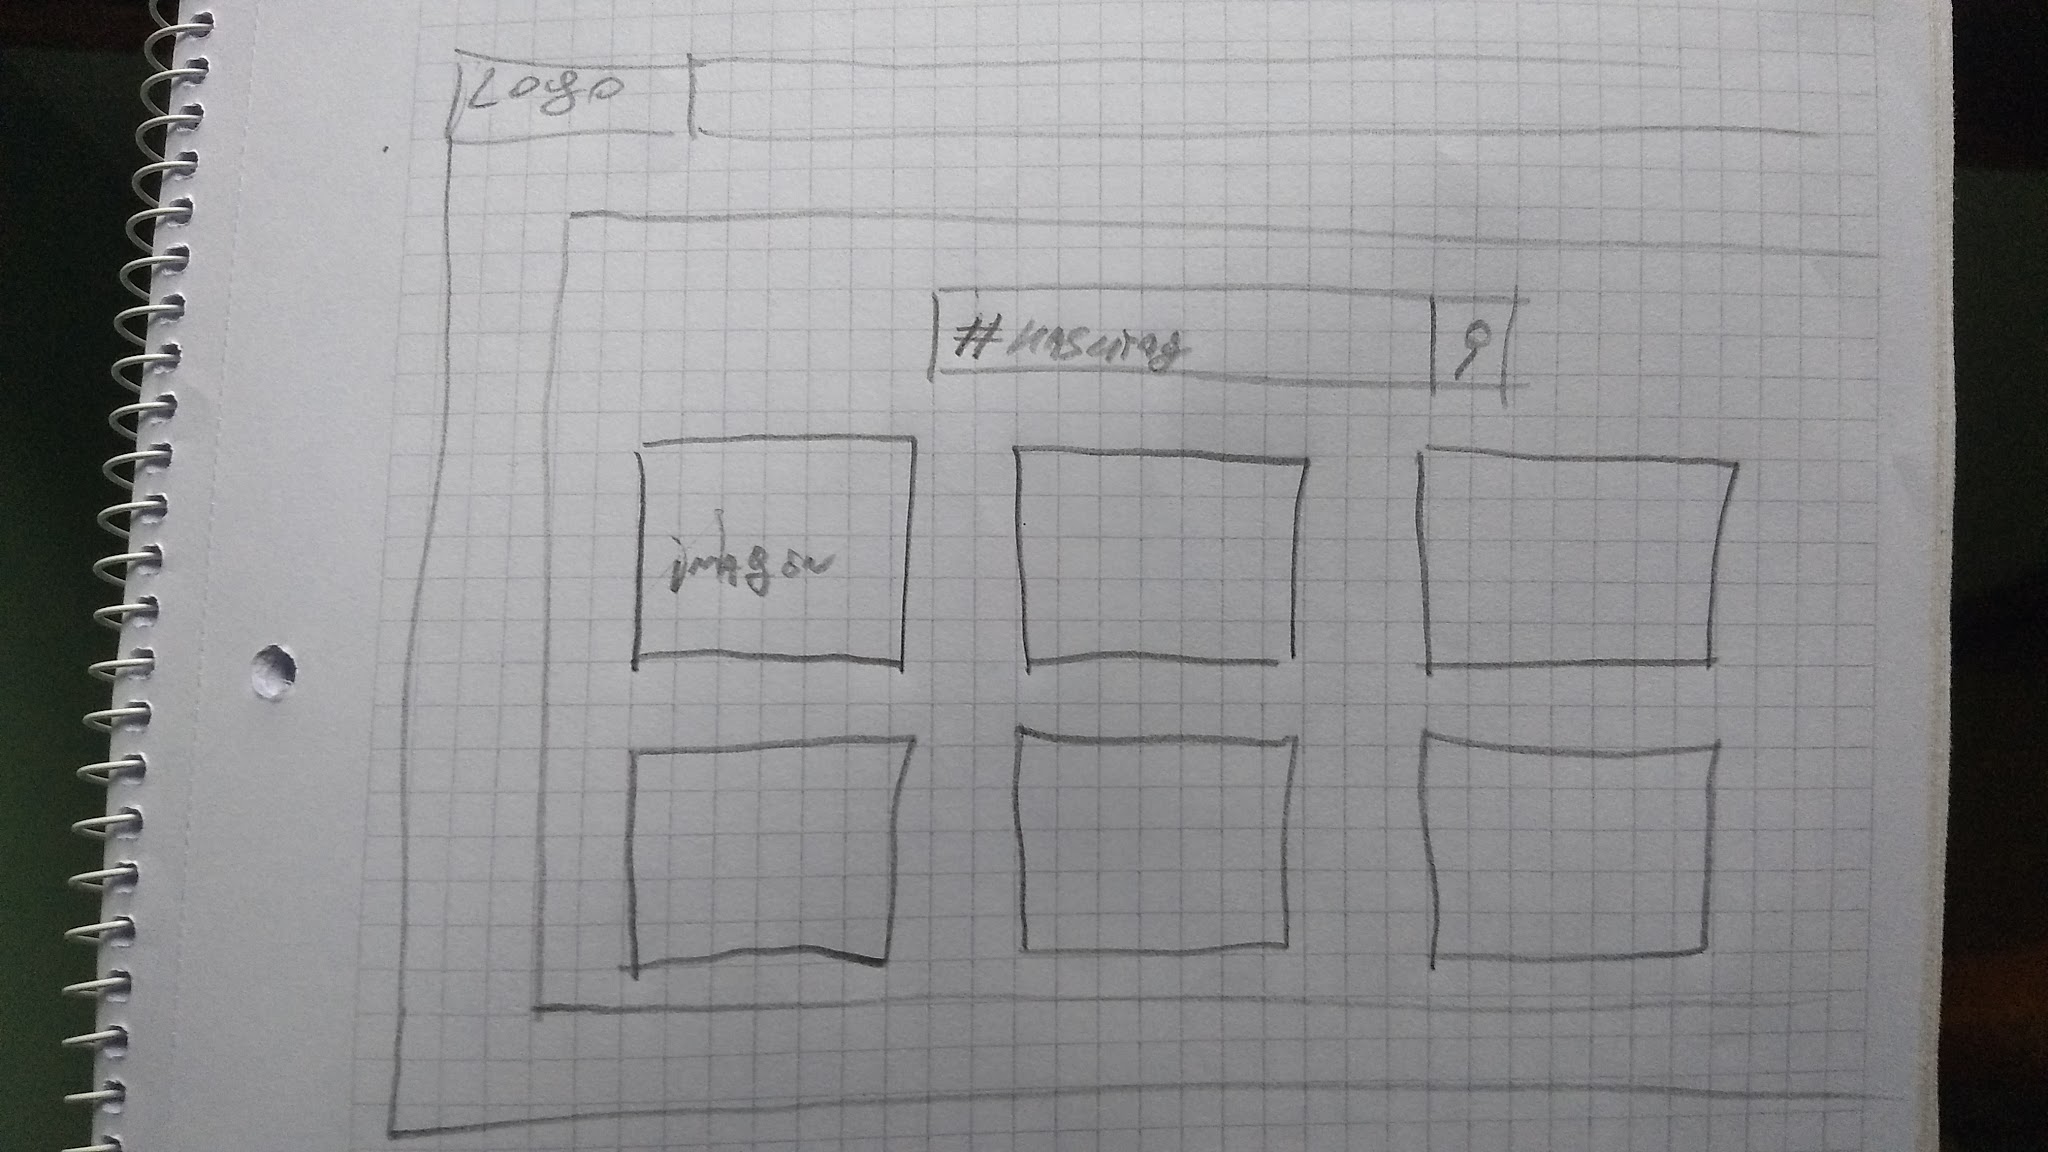 Logo
#hashtag
imagen